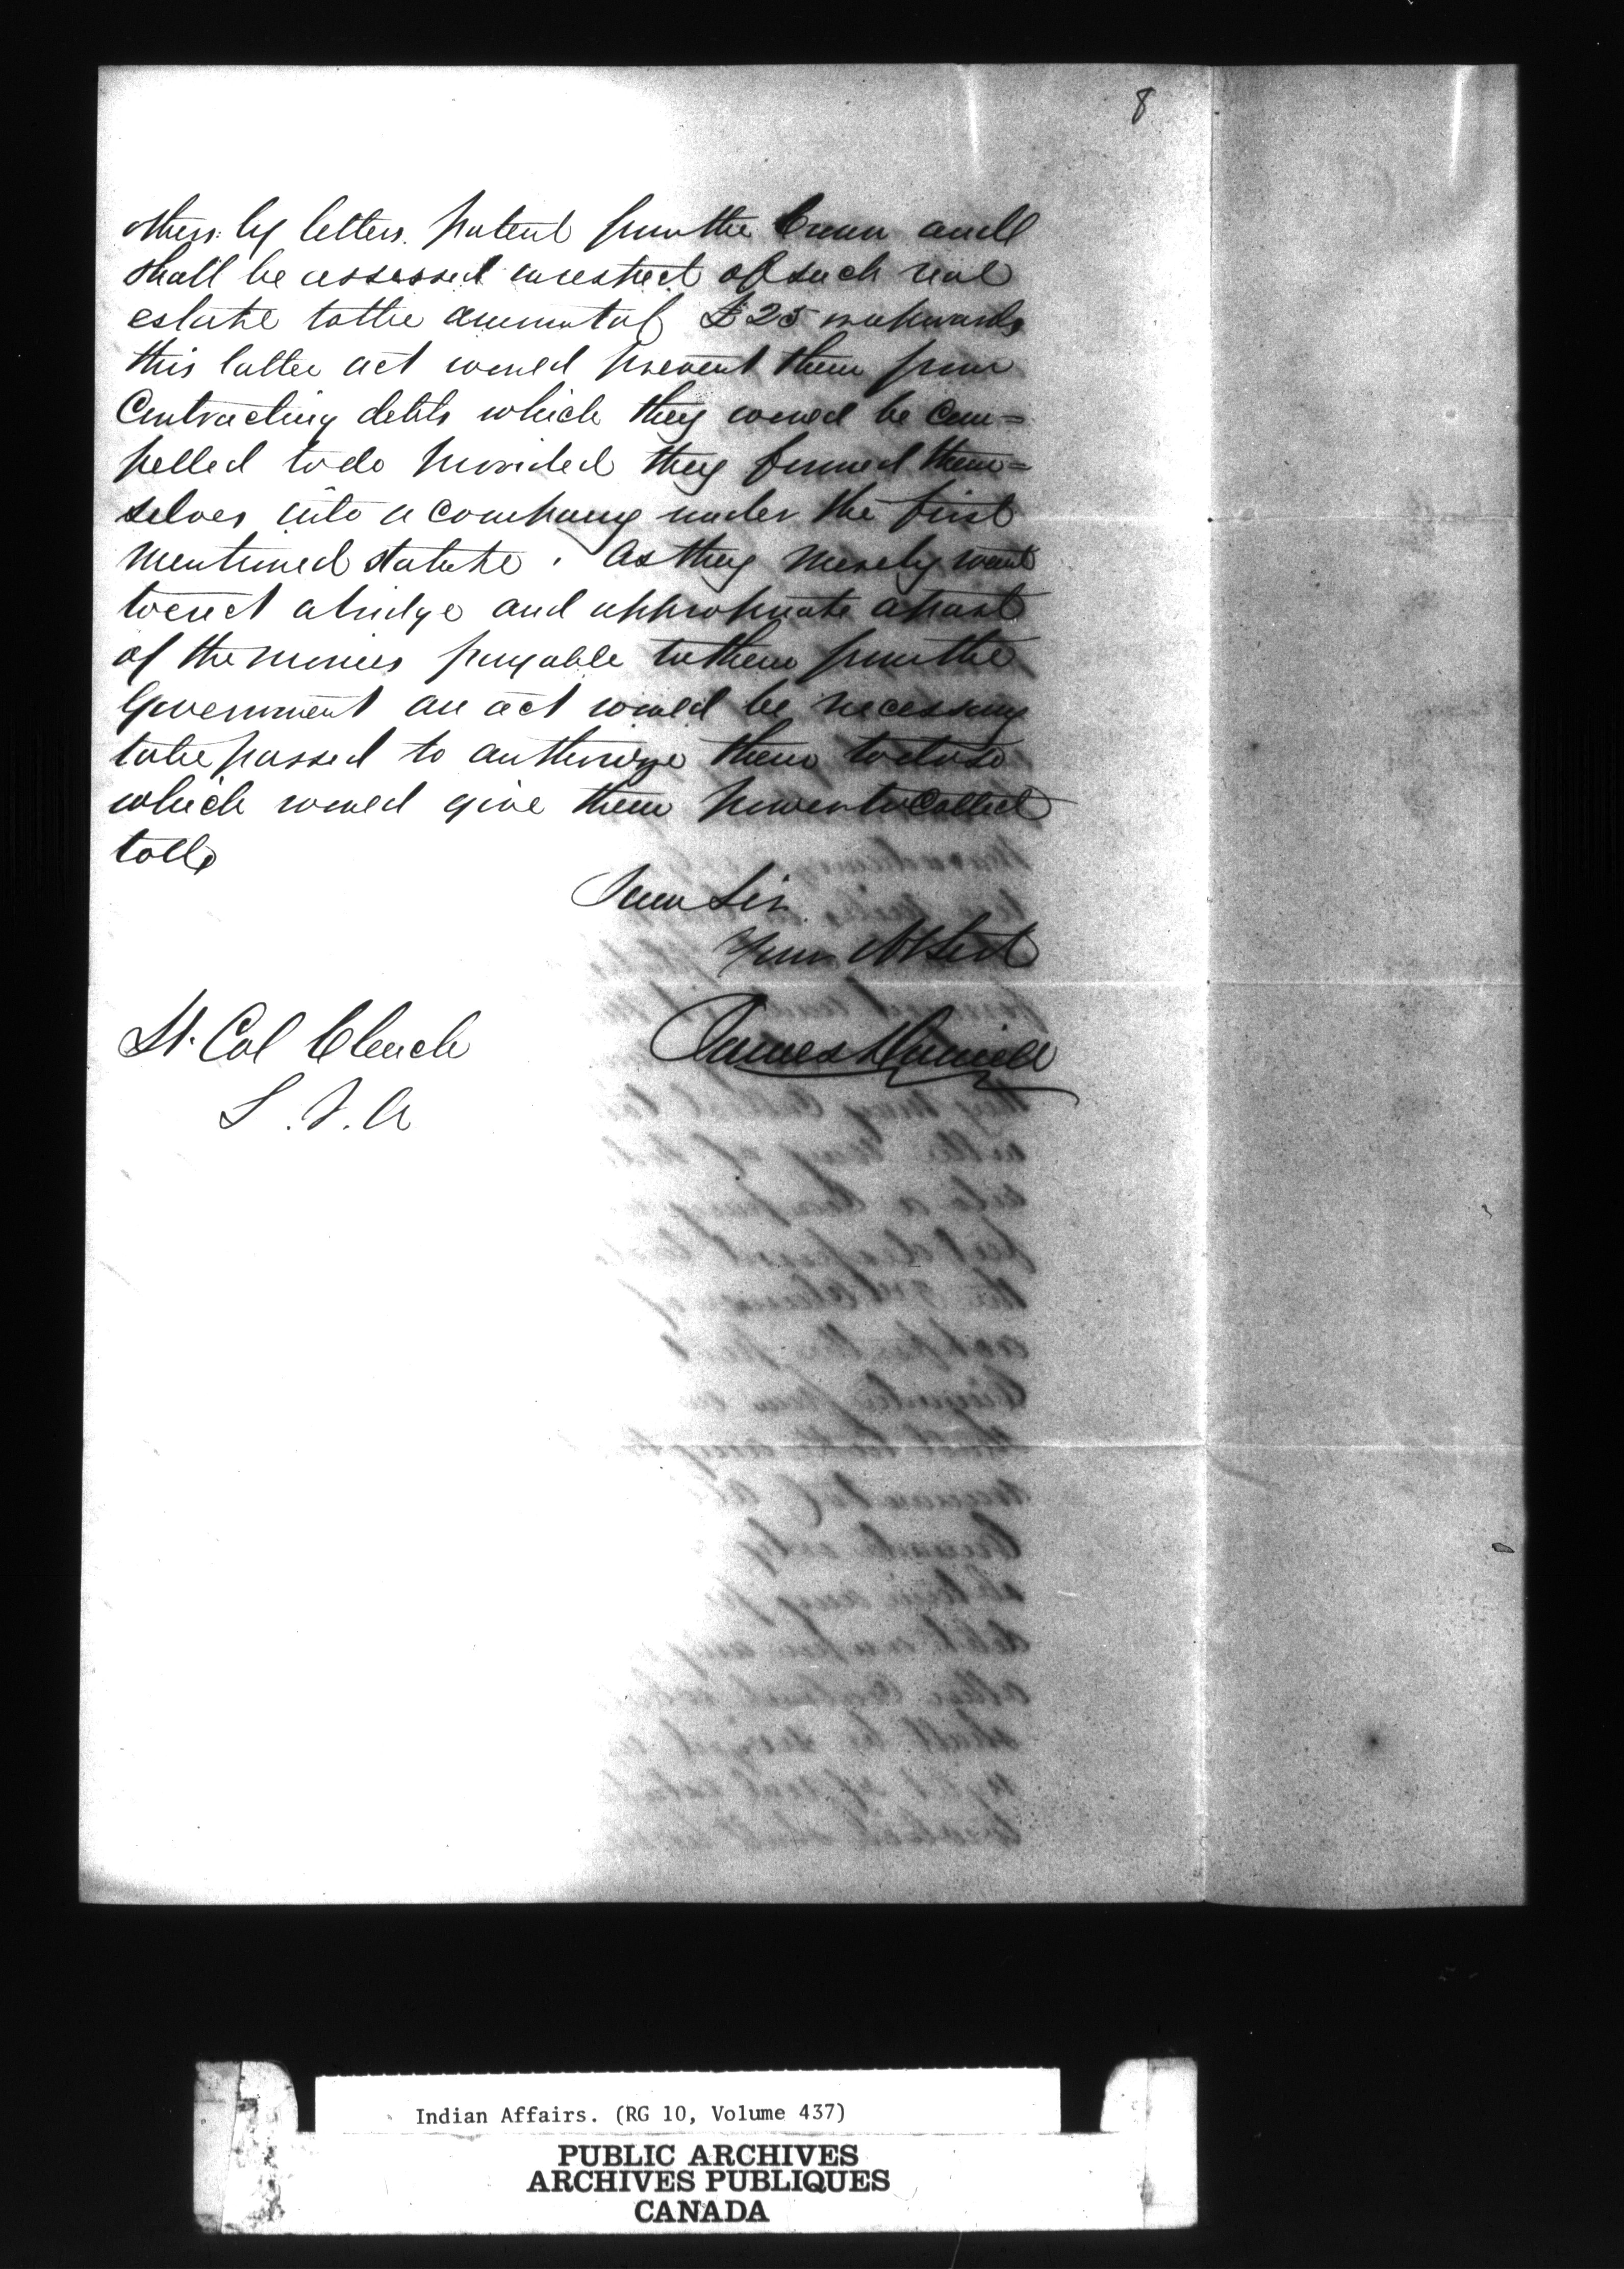 8
others by letters patent from the Crown and
shall be assessed in respect of such real
estate to the amount of £25 or upwards
this latter act would prevent them from
Contracting debts which they would be Com=
pelled to do provided they formed them=
selves into a company under the first
mentioned statute. As they merely want
to erect a bridge and appropriate a part
of the monies payable to them from the
Government an act would be necessary
to be passed to authorize them to do so
which would give them power to Collect
tolls
I am Sir
Your Ob Sert
James
Lt. Col Clench
S. I. A
Indian Affairs. (RG 10, Volume 437)
PUBLIC ARCHIVES
ARCHIVES PUBLIQUES
CANADA